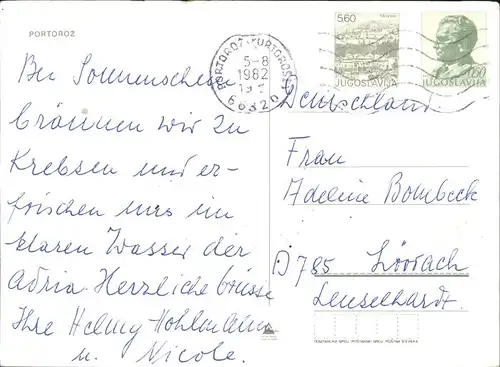 PORTOROŽ
Bei Sonnenschein
bräunen wir zu
Krebsen und er-
frischen uns im
klaren Wasser der
Adria Herzliche Grüsse
Ihre Helmy Hohlmann
u. Nicole.
5,60
JUGOSLAVIJA
JUGOSLAVIJA
PORTOROŽ-PORTOROSE
5-8
1982
66320
Deutschland.
Frau
Adeline Bombeck
D 785 Lörrach
Lenselhardt.